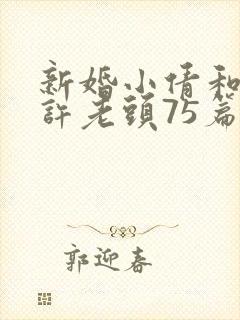 新婚小倩和
許老頭75篇
郭迎春